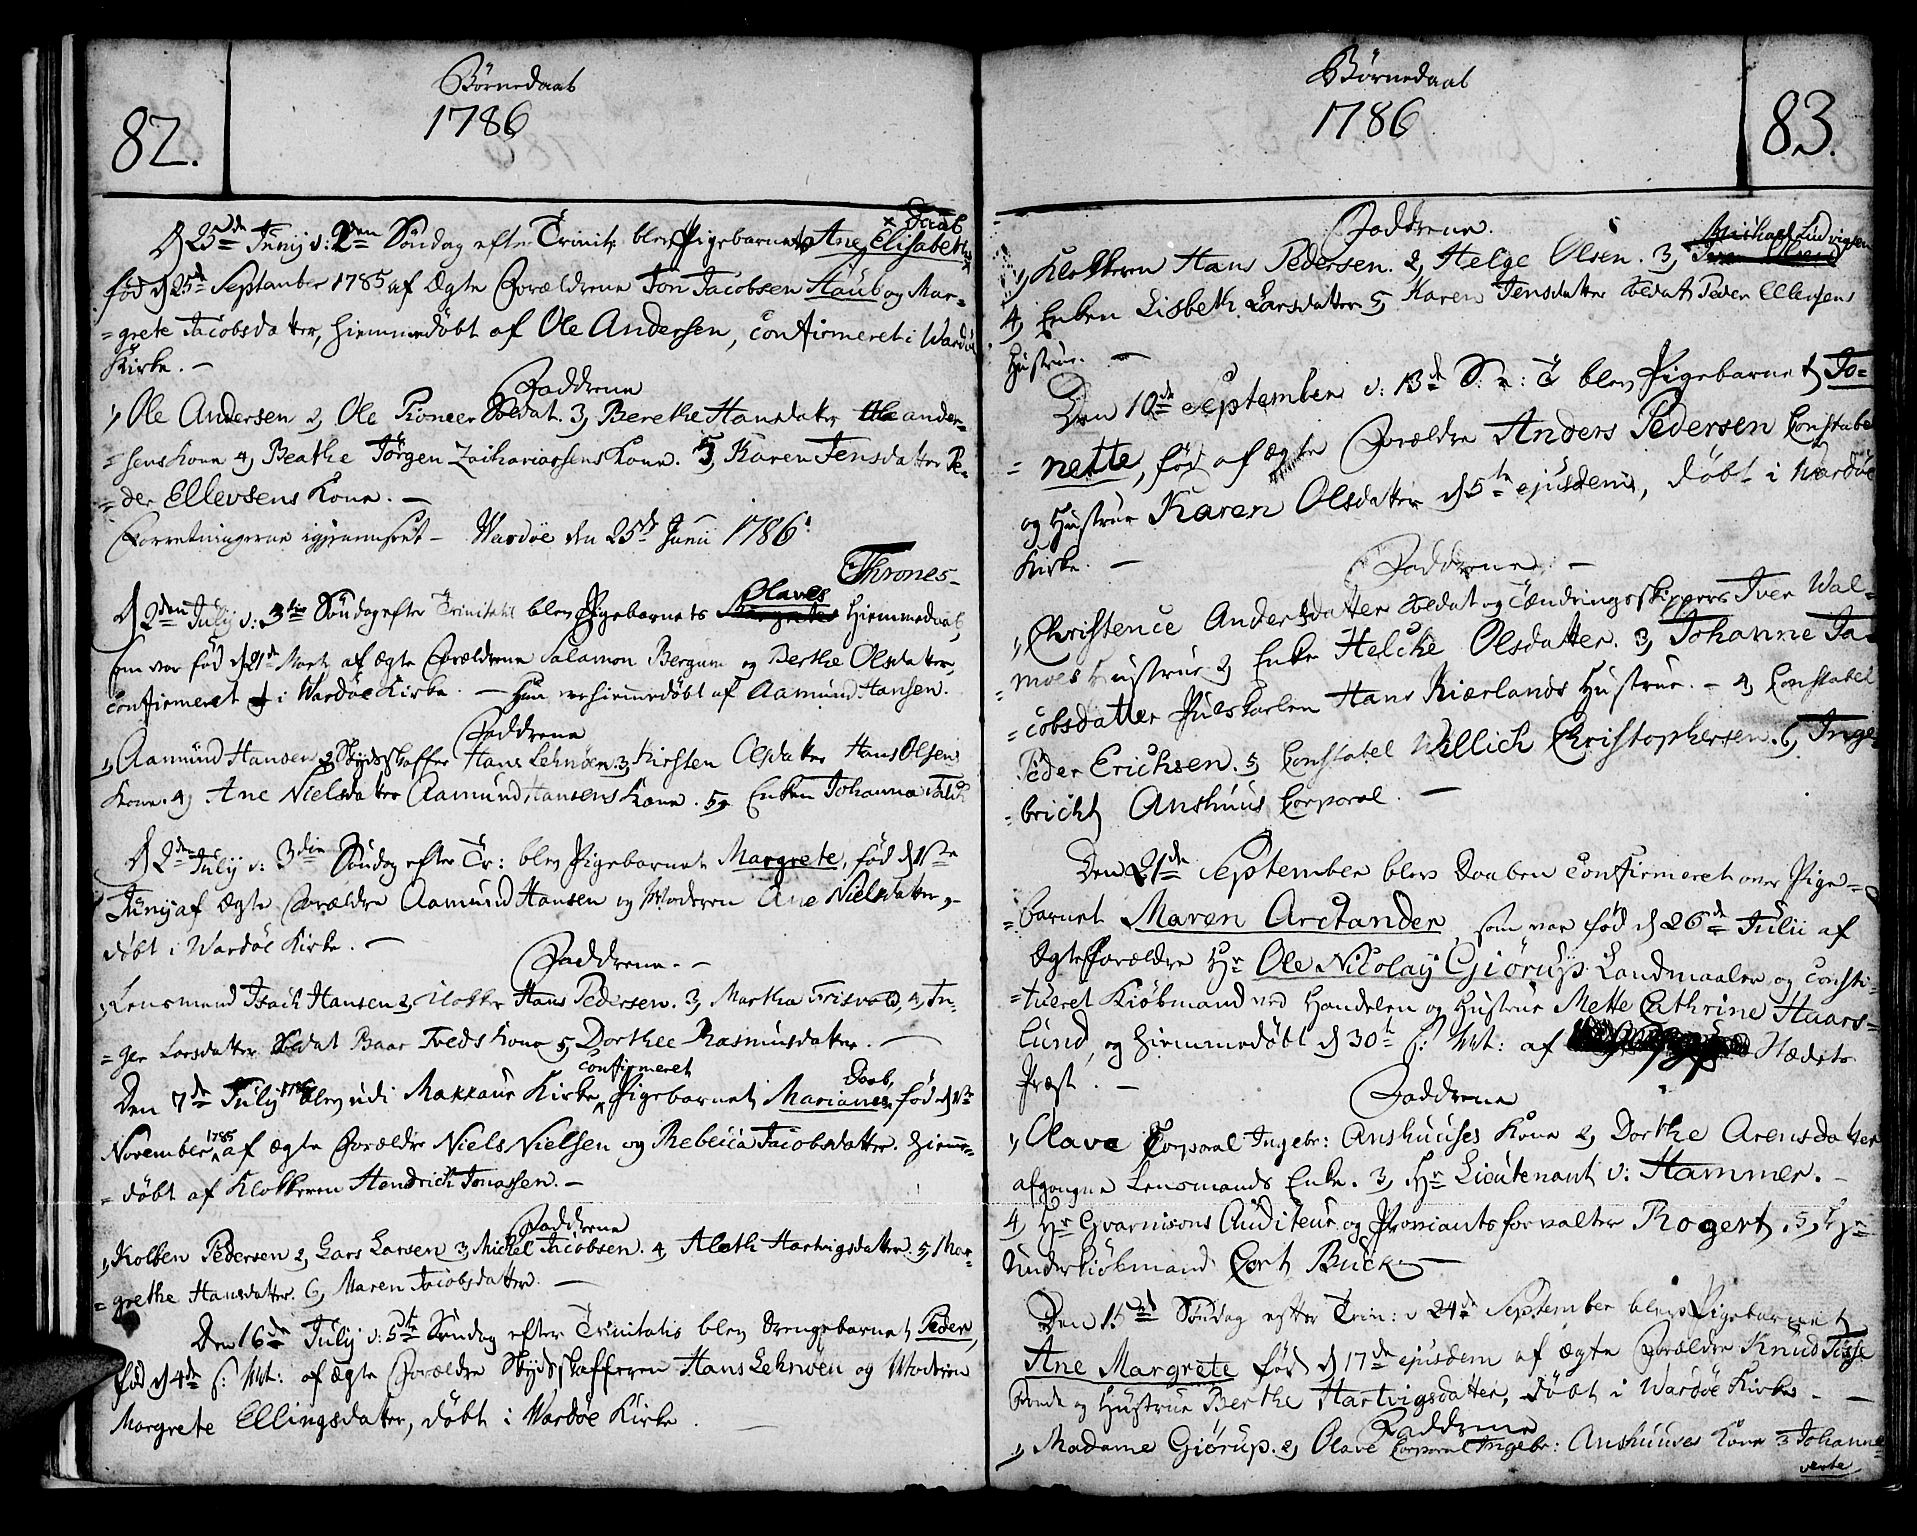 Børnedaab
1786
82.
D 25de Junij v: 2den Søndag efter Trinit. blev Pigebarnets Ane Elisabeth x Daab
fød d 25de September 1785 af Ægte Forældrene Jon Jacobsen Haub og Mar-
=grete Jacobsdatter, hiemmedøbt af Ole Andersen, confirmeret i Wardøe
Kirke. -
Faddrene
1, Ole Andersen 2, Ole Pioneer Soldat. 3, Berethe Hansdater Ole ander-
=sens Kone 4, Beathe Jørgen Zachariassens Kone. 5, Karen Jensdatter Pe-
=der Ellevsens Kone. -
Forretningerne igiennemseet - Wardøe den 25de Junii 1786.
Thrones-
D 2den Julij v: 3die Søndag efter Trinitatis blev Pigebarnets Olaves Margretes Hiemmedaab,
som var fød d 21de Marti af ægte Forældrene Salamon Bergum og Berthe Olsdatter,
confirmeret i Wardøe Kirke. - Hun er hiemmedøbt af Aamund Hansen.
Faddrene
1, Aamund Hansen 2, Skydsskaffer Hans Lehnøen. 3, Kirsten Olsdatter Hans Olsens
Kone. 4, Ane Nielsdatter Aamund Hansens Kone. 5, Enken Johanna Falch
D 2den Julij v: 3die Søndag efter Tr: blev Pigebarnet Margrete, fød d 1ste
Junij af Ægte Forældre Aamund Hansen og Moderen Ane Nielsdatter,-
døbt i Wardøe Kirke. -
Faddrene. -
1, Lensmand Isach Hansen 2, Klokker Hans Pedersen. 3, Martha Frisvold, 4, In-
=ger Larsdatter Soldat Baar Iveds Kone 5, Dorthee Rasmusdatter. -
Den 7de Julij 1786 blev udi Makkaur Kirke confirmeret Pigebarnet Marianes Daab, fød d 1ste
November 1785 af ægte Forældre Niels Nielsen og Rebecca Jacobsdatter. Hiemme-
=døbt af Klokkeren Hendrich Jonassen. -
Faddrene
1, Kolben Pedersen 2, Lars Larsen 3, Michel Jacobsen. 4, Aleth Hartvigsdatter. 5, Mar-
=grethe Hansdatter. 6, Maren Jacobsdatter. -
Den 16de Julij v: 5te Søndag efter Trinitatis blev Drengebarnet Peder,
fød d 4de h: Mt: af ægte Forældre Skydsskafferen Hans Lehnøen og Moderen
Margrete Ellingsdatter, døbt i Wardøe Kirke. -
Børnedaab
1786
83.
Faddrene.
1, Klokkeren Hans Pedersen. 2, Helge Olsen. 3, Michael Ludvigsen
4, Enken Lisbeth Larsdatter 5, Karen Jensdatter Soldat Peder Ellevsens
Hustrue. -
Den 10de September v: 13de S: e: T blev Pigebarnet Jo-
=nette, fød af ægte Forældre Anders Pedersen Constabel
og Hustrue Karen Olsdatter d 5te ejusdem, døbt i Wardøe
Kirke. -
Faddrene. -
1, Christence Andersdatter Soldat og Tændringsskippers Iver Wal-
=moes Hustrue 2, Enke Helche Olsdatter. 3, Johanne Ja-
=cobsdatter Pulskarlen Hans Kierlands Hustrue. - 4, Constabel
Peder Erichsen. 5, Constabel Willich Christophersen. 6, Inge-
=bricht Anshuus Corporal. -
Den 21de September blev Daaben confirmeret over Pige-
=barnet Maren Arctander, som var fød d 26de Julii af
Ægte Forældre Hr Ole Nicolay Giørup Landmaaler og consti-
=tueret Kiøbmand ved Handelen og Hustrue Mette Cathrine Haars-
Lund, og hiemmedøbt d 30te h: Mt: af Stædets
Præst. -
Faddrene
1, Olave Corporal Ingebr: Anshuuses Kone 2, Dorthe Arensdatter
afgangne Lensmands Enke. 3, Hr Lieutenant v: Hammer. -
4, Hr Gvarnisons Auditeur og Proviantsforvalter Rogert. 5, Hr
Underkiøbmand Cort Buck. -
Den 15de Søndag efter Trin: v 24de September blev Pigebarnet
Ane Margrete fød d 17de ejusdem af Ægte Forældre Knud
Bonde og Hustrue Berthe Hartvigsdatter, døbt i Wardøe Kirke. -
Faddrene
1, Madame Giørup. 2, Olave Corporal Ingebr: Anshuuses Kone 3 Johanne
verte